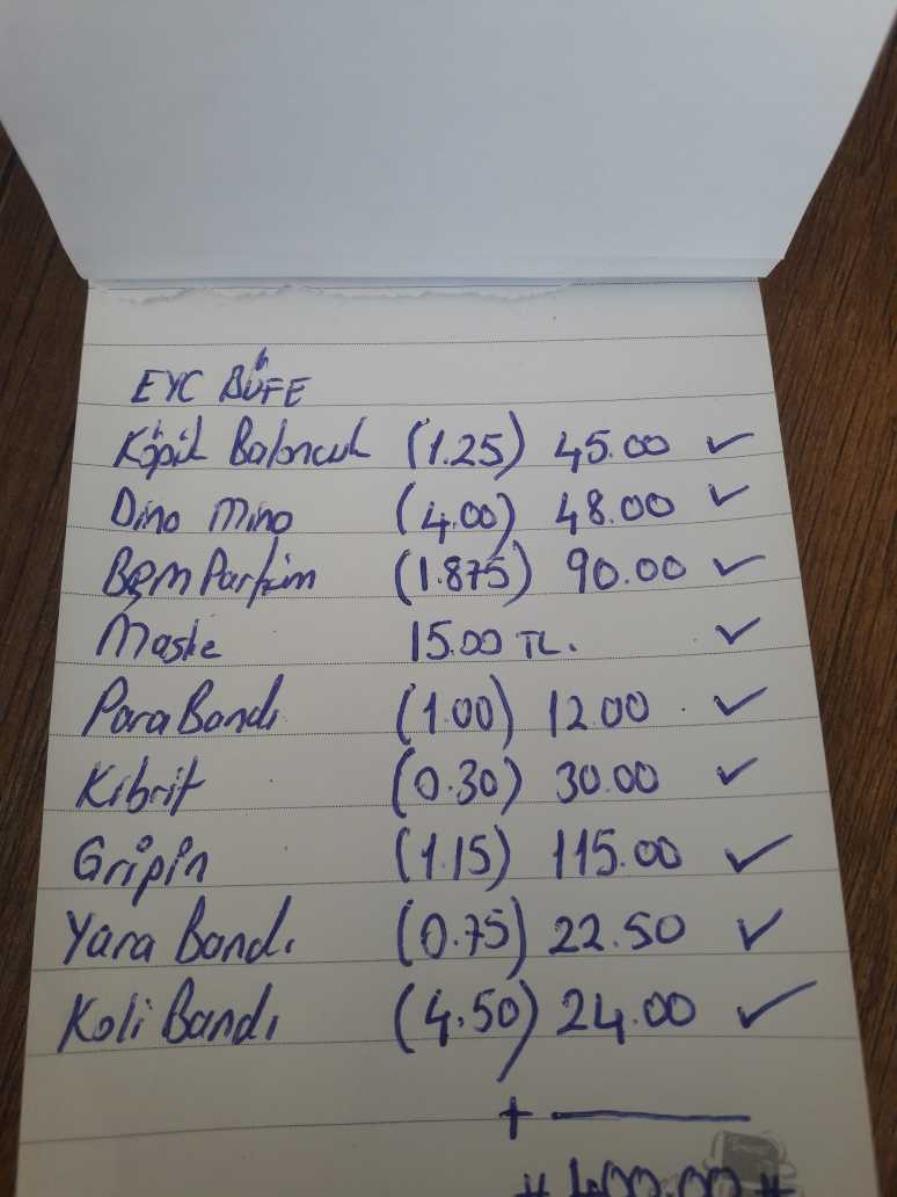 EYC BÜFE
Köpük Baloncuk (1.25) 45.00 ✓
Dino Mino (4.00) 48.00 ✓
Parfüm (1.875) 90.00 ✓
Maske 15.00 TL. ✓
Para Bandı (1.00) 12.00 ✓
Kibrit (0.30) 30.00 ✓
Gripin (1.15) 115.00 ✓
Yara Bandı (0.75) 22.50 ✓
Koli Bandı (4.50) 24.00 ✓
+
# 400.00 #